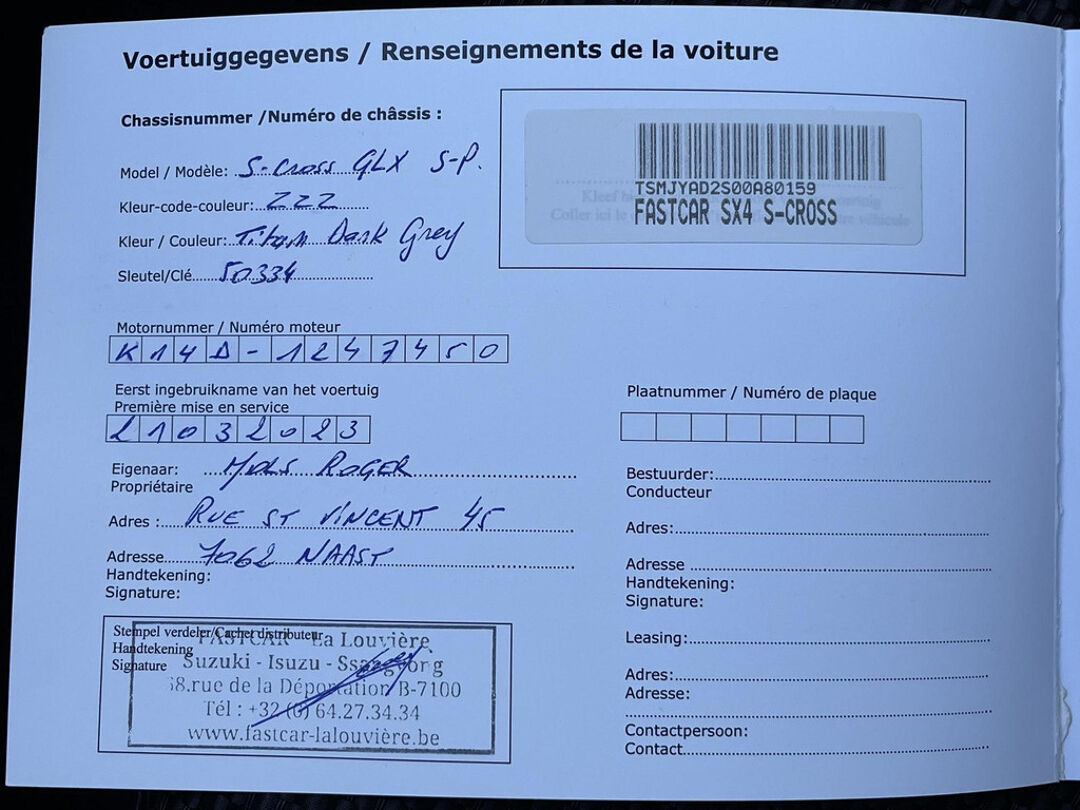 Voertuiggegevens / Renseignements de la voiture
Chassisnummer /Numéro de châssis :
TSMJYAD2S00A80159
FASTCAR SX4 S-CROSS
Model / Modèle: S-Cross GLX S-P.
Kleur-code-couleur: ZZZ
Kleur / Couleur: Titan Dark Grey
Sleutel/Clé 50334
Motornummer / Numéro moteur
K14D-1247450
Eerst ingebruikname van het voertuig
Première mise en service
21032023
Eigenaar: MOLS ROGER
Propriétaire
Adres : RUE ST VINCENT 45
Adresse 7062 NAAST
Handtekening:
Signature:
Stempel verdeler/Cachet distributeur
Handtekening
Signature
FASTCAR La Louvière
Suzuki - Isuzu - Ssangyong
58.rue de la Déportation B-7100
Tél : +32 (0) 64.27.34.34
www.fastcar-lalouvière.be
Plaatnummer / Numéro de plaque
Bestuurder:
Conducteur
Adres:
Adresse
Handtekening:
Signature:
Leasing:
Adres:
Adresse:
Contactpersoon:
Contact